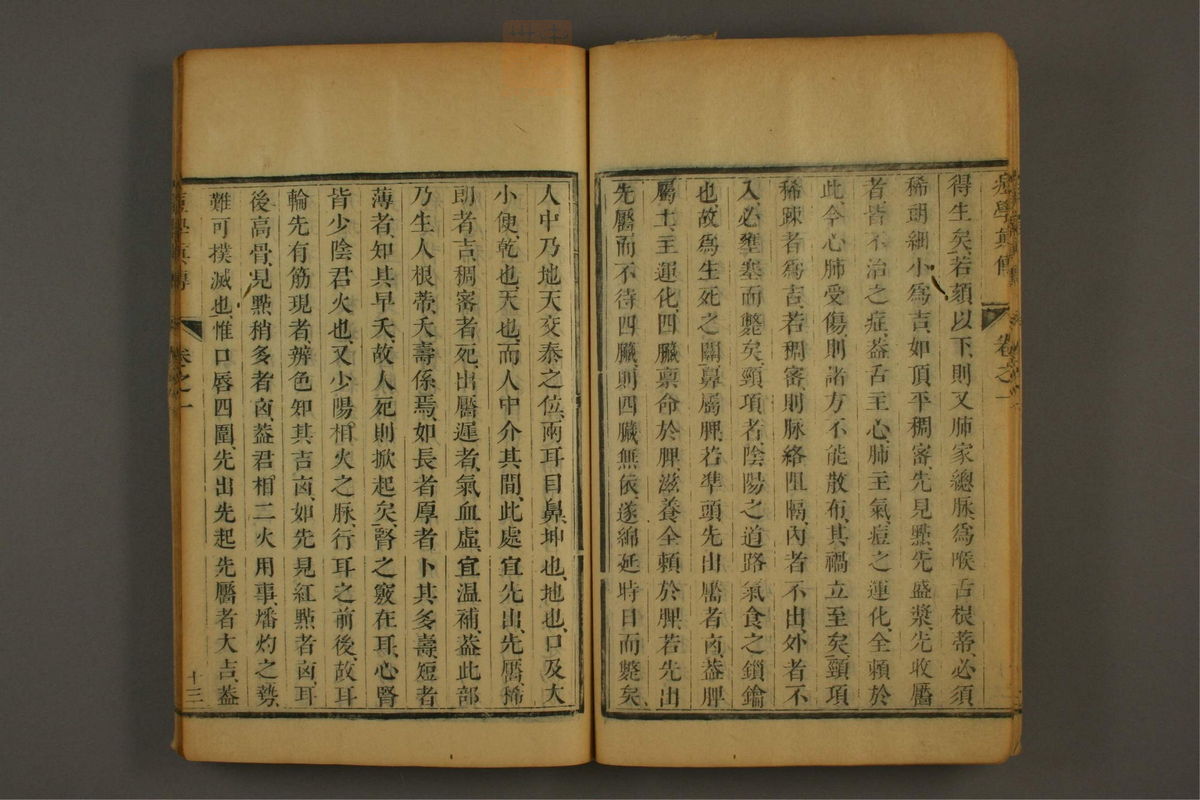 痘學真傳 卷之一
得生矣、若頦以下、則又肺家總脉、為喉舌根蒂、必須
稀朗細小為吉、如頂平稠密、先見點、先盛漿、先收靨
者、皆不治之症、葢舌主心、肺主氣、痘之運化、全賴於
此、今心肺受傷、則諸方不能散布、其禍立至矣、頸項
稀疎者為吉、若稠密、則脉絡阻隔、內者不出、外者不
入、必壅塞而斃矣、頸項者、陰陽之道路、氣食之鎖鑰
也、故為生死之關、鼻屬脾、若準頭先出靨者凶、葢脾
屬土、主運化、四臟禀命於脾、滋養全賴於脾、若先出
先靨、而不待四臟、則四臟無依、遂綿延時日而斃矣、
人中乃地天交泰之位、兩耳目鼻、坤也、地也、口及大
小便、乾也、天也、而人中介其間、此處宜先出、先靨、稀
朗者吉、稠密者死、出靨遲者、氣血虛、宜温補、葢此部
乃生人根蒂、夭壽係焉、如長者厚者、卜其多壽、短者
薄者、知其早夭、故人死則掀起矣、腎之竅在耳、心腎
皆少陰君火也、又少陽相火之脉、行耳之前後、故耳
輪先有筋現者、辨色知其吉凶、如先見紅點者凶、耳
後高骨、見點稍多者凶、葢君相二火用事、燔灼之勢、
難可撲滅也、惟口唇四圍、先出先起先靨者大吉、葢
痘學真傳 卷之一 十三